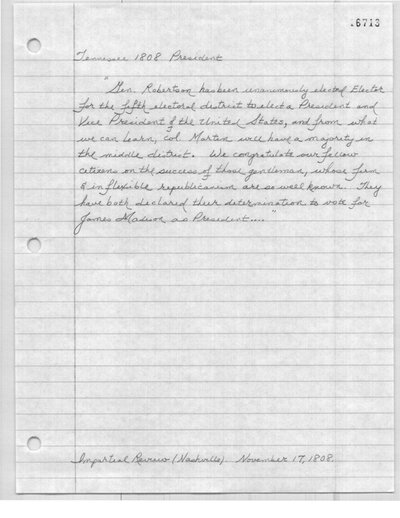 .6713
Tennessee 1808 President
"Gen. Robertson has been unanimously elected Elector
for the fifth electoral district to elect a President and
Vice President of the United States, and from what
we can learn, Col. Martin will have a majority in
the middle district. We congratulate our fellow
citizens on the success of those gentleman, whose firm
& inflexible republicanism are so well known. They
have both declared their determination to vote for
James Madison as President...."
Impartial Review (Nashville). November 17, 1808.